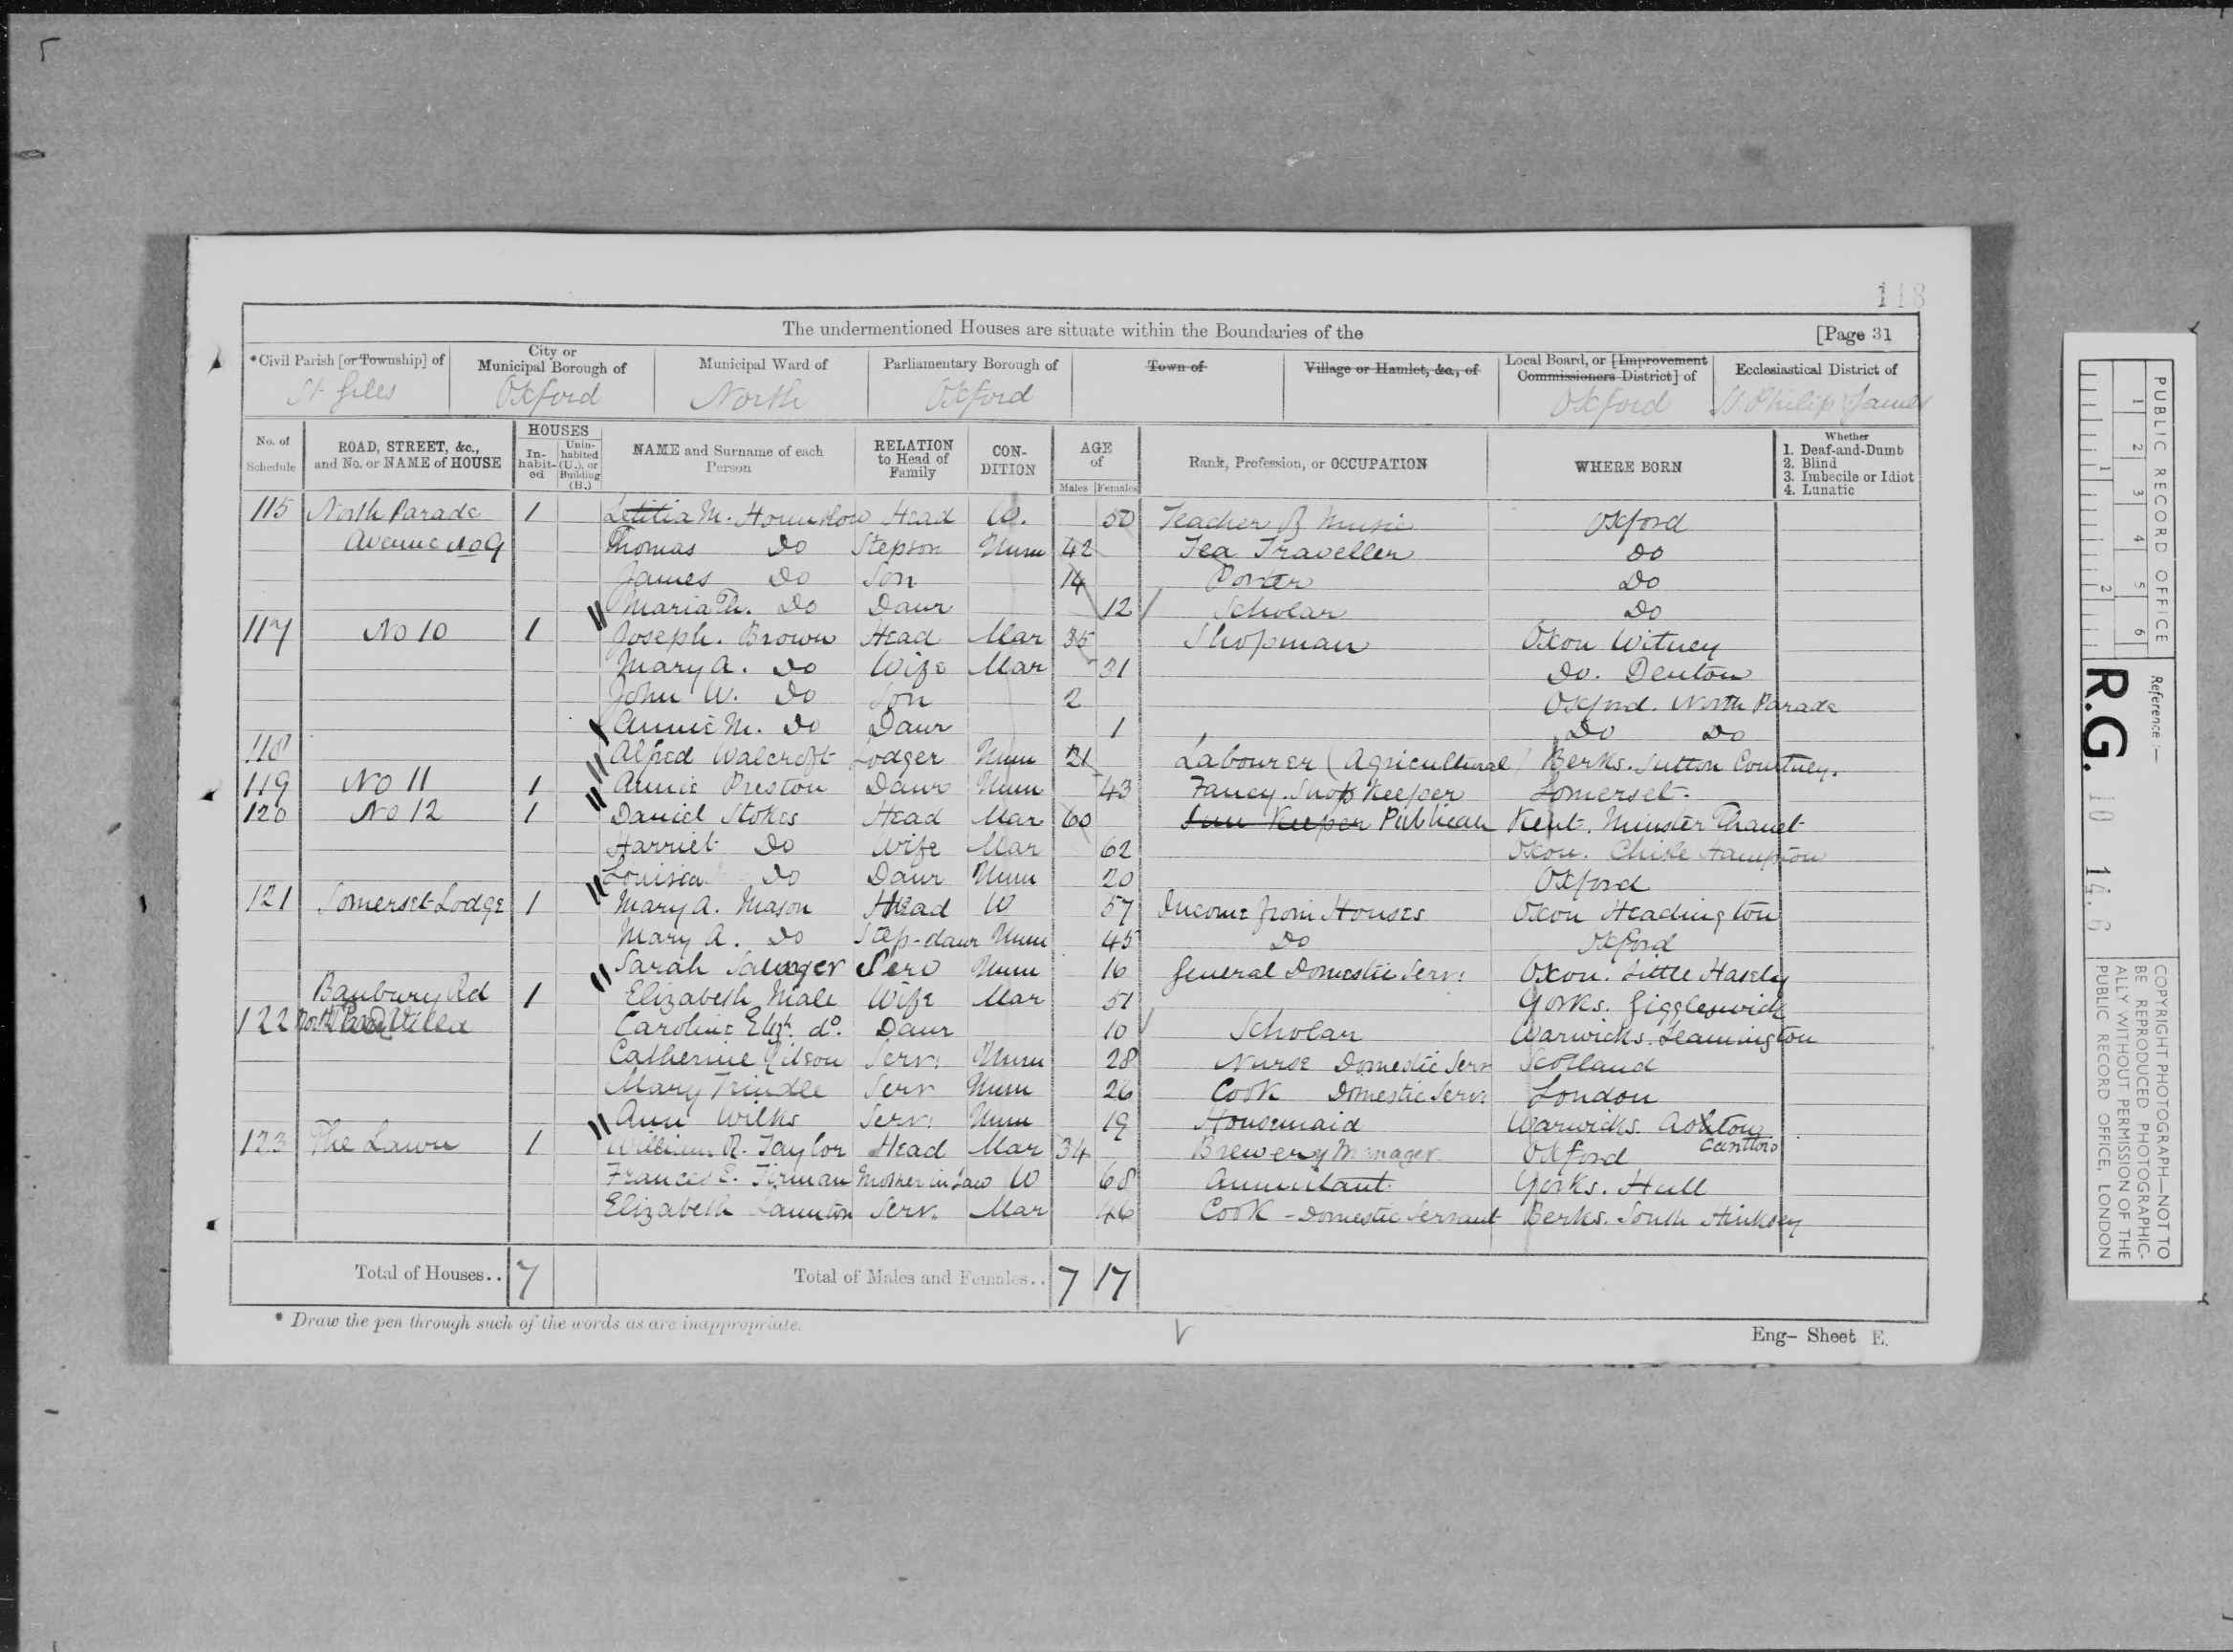 118
The undermentioned Houses are situate within the Boundaries of the [Page 31
*Civil Parish [or Township] of City or Municipal Borough of Municipal Ward of Parliamentary Borough of Town of Village or Hamlet, &c., of Local Board, or [Improvement Commissioners District] of Ecclesiastical District of
St Giles Oxford North Oxford Oxford St Philip James
No. of Schedule ROAD, STREET, &c., and No. or NAME of HOUSE HOUSES In-habit-ed Unin-habited (U.), or Building (B.) NAME and Surname of each Person RELATION to Head of Family CON-DITION AGE of Males Females Rank, Profession, or OCCUPATION WHERE BORN Whether 1. Deaf-and-Dumb 2. Blind 3. Imbecile or Idiot 4. Lunatic
115 North Parade 1 Letitia M. Hounslow Head W. 50 Teacher of Music Oxford
Avenue No 9 Thomas Do Stepson Unm 42 Tea Traveller Do
James Do Son 14 Porter Do
Maria Th. Do Daur 12 Scholar Do
117 No 10 1 Joseph. Brown Head Mar 35 Shopman Oxon Witney
Mary A. Do Wife Mar 31 Do. Denton
John W. Do Son 2 Oxford. North Parade
Annie M. Do Daur 1 Do Do
118 Alfred Walcroft Lodger Unm 21 Labourer (Agricultural) Berks. Sutton Courtney.
119 No 11 1 Annie Preston Daur Unm 43 Fancy. Shop Keeper Somerset.
120 No 12 1 Daniel Stokes Head Mar 60 Inn Keeper Publican Kent. Minster Thanet
Harriet Do Wife Mar 62 Oxon. Chisle Hampton
Louisa Do Daur Unm 20 Oxford
121 Somerset Lodge 1 Mary A. Mason Head W 57 Income from Houses Oxon Headington
Mary A. Do Step-daur Unm 45 Do Oxford
Sarah Serv Unm 16 General Domestic Serv: Oxon. Little Hasely
Banbury Rd 1 Elizabeth Male Wife Mar 51 Yorks. Giggleswick
122 North Villa Caroline Elizth do. Daur 10 Scholar Warwicks. Leamington
Catherine Gilson Serv: Unm 28 Nurse Domestic Serv Scotland
Mary Trindle Serv Unm 26 Cook Domestic Serv: London
Ann Wilks Serv: Unm 19 Housemaid Warwicks. Aston Cantlow
123 The Lawn 1 William R. Taylor Head Mar 34 Brewery Manager Oxford
Frances E. Tirman Mother in Law W 68 Annuitant Yorks. Hull
Elizabeth Launton Serv. Mar 46 Cook - Domestic Servant Berks. South Hinksey
Total of Houses.. 7 Total of Males and Females.. 7 17
* Draw the pen through such of the words as are inappropriate.
Eng- Sheet E.
PUBLIC RECORD OFFICE
1 2 3 4 5 6
1 2
Reference:—
R.G. 10 14.6
COPYRIGHT PHOTOGRAPH—NOT TO
BE REPRODUCED PHOTOGRAPHIC-
ALLY WITHOUT PERMISSION OF THE
PUBLIC RECORD OFFICE, LONDON